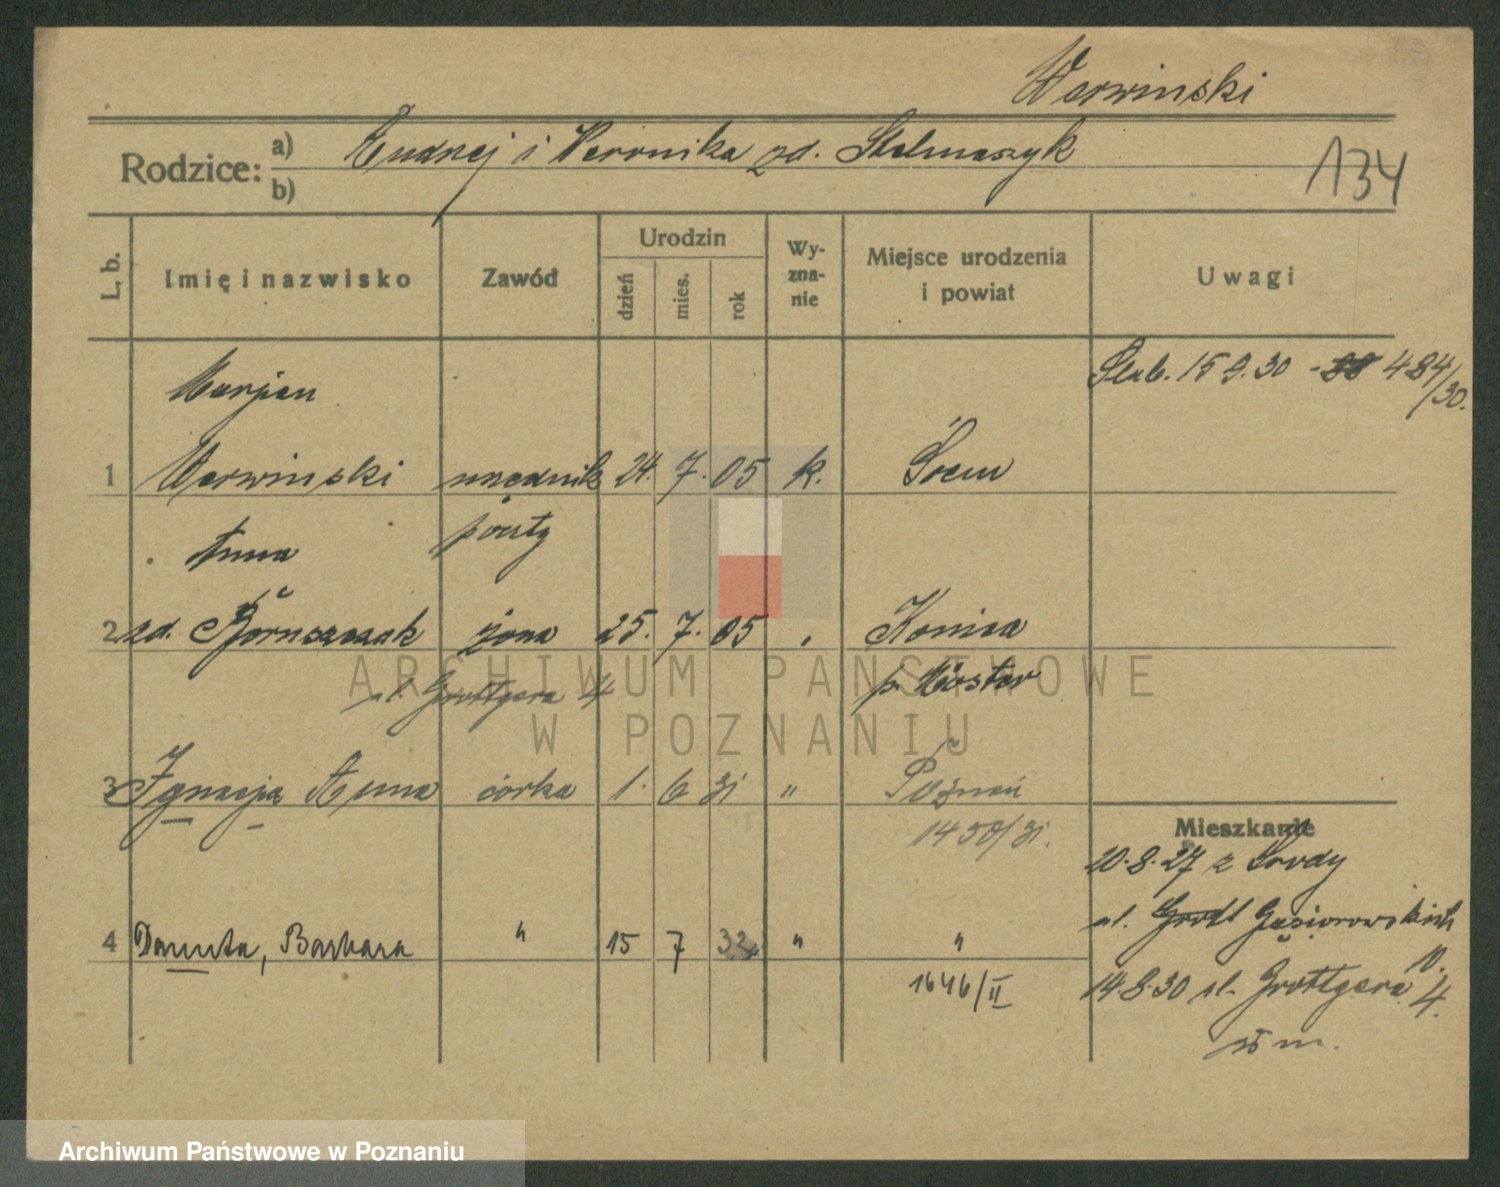 Werwinski
Rodzice: a) Andrzej i Weronika zd. Stelmaszyk
b)
134
L. b.
Imię i nazwisko
Zawód
Urodzin
dzień
mies.
rok
Wy-
zna-
nie
Miejsce urodzenia
i powiat
Uwagi
Ślub. 15 9.30 - 484/30.
Marjan
1 Werwinski urzędnik 24. 7. 05 k. Śrem
poczty
Anna
2 zd. żona 25. 7. 05 „
p.
ul. Grottgera 4
3 Ignacja Anna córka 1. 6 31 „ Poznań
1450/31.
4 Danuta, Barbara „ 15 7 32 „ „
1646/II
Mieszkanie
20.8.27 z
ul. Grott Gąsiorowskich
10.
14.8.30 ul. Grottgera 4.
ARCHIWUM PAŃSTWOWE
W POZNANIU
Archiwum Państwowe w Poznaniu